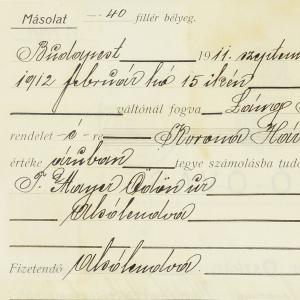 Másolat — 40 fillér bélyeg.
Budapest 1911. szeptem
1912 február hó 15 ikén
váltónál fogva Láng
rendelet-é-re Korona Hár
értéke áruban tegye számolásba tudó
T. Mayer Ödön ur
Alsólendva
Fizetendő Alsólendva.